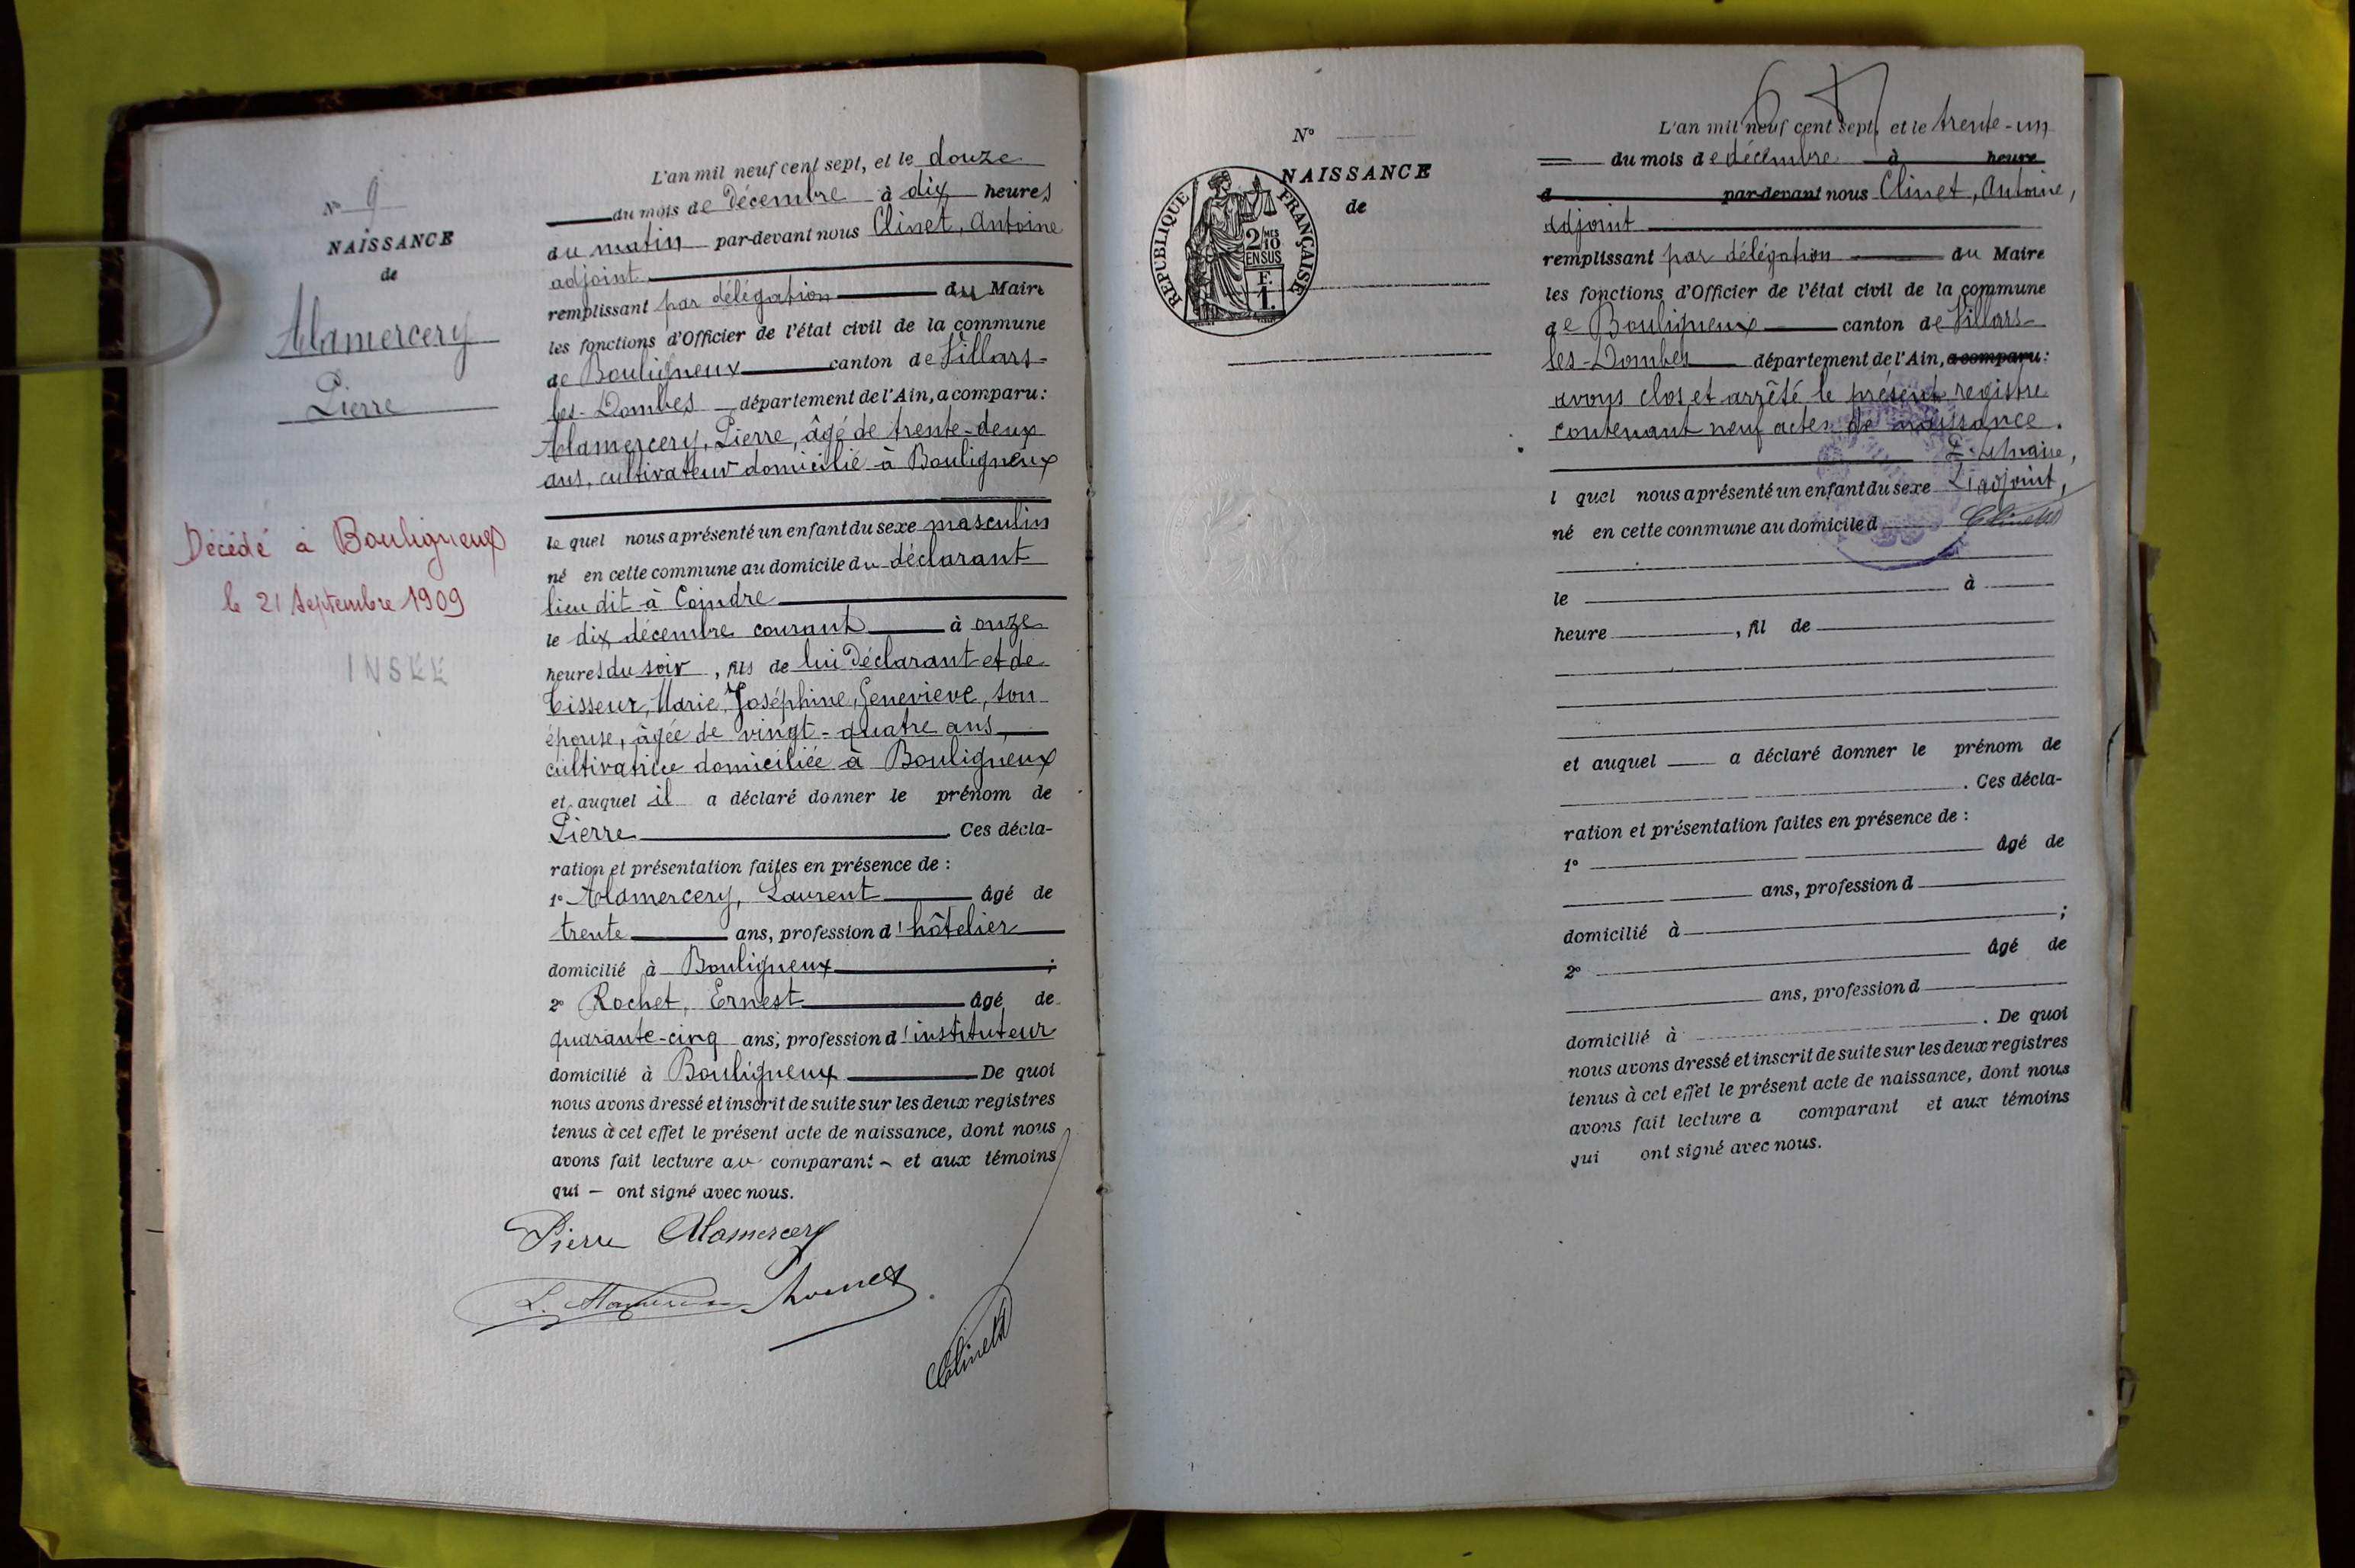 N° 9
NAISSANCE
de
Alamercery
Pierre
Décédé à Bouligneux
le 21 Septembre 1909
INSEE
L'an mil neuf cent sept, et le douze
du mois de Décembre à dix heures
du matin par-devant nous Clinet, Antoine
adjoint
remplissant par délégation du Maire
les fonctions d'Officier de l'état civil de la commune
de Bouligneux canton de Villars-
les-Dombes département de l'Ain, a comparu:
Alamercery, Pierre, âgé de trente-deux
ans, cultivateur domicilié à Bouligneux
le quel nous a présenté un enfant du sexe masculin
né en cette commune au domicile du déclarant
lieu dit à Coindre
le dix décembre courant à onze
heures du soir, fils de lui Déclarant et de
Tisseur, Marie, Joséphine, Geneviève, son
épouse, âgée de vingt-quatre ans,
cultivatrice domiciliée à Bouligneux
et auquel il a déclaré donner le prénom de
Pierre. Ces décla-
ration et présentation faites en présence de :
1° Alamercery, Laurent âgé de
trente ans, profession d'hôtelier
domicilié à Bouligneux ;
2° Rochet, Ernest âgé de
quarante-cinq ans, profession d'instituteur
domicilié à Bouligneux De quoi
nous avons dressé et inscrit de suite sur les deux registres
tenus à cet effet le présent acte de naissance, dont nous
avons fait lecture au comparant - et aux témoins
qui - ont signé avec nous.
Pierre Alamercery
L. Alamercery
Clinet
N°
NAISSANCE
de
RÉPUBLIQUE FRANÇAISE
2/10 MES
EN SUS
F.
1.
L'an mil neuf cent sept, et le trente-un
du mois de décembre à heure
d par-devant nous Clinet, Antoine,
adjoint
remplissant par délégation du Maire
les fonctions d'Officier de l'état civil de la commune
de Bouligneux canton de Villars-
les-Dombes département de l'Ain, a comparu:
avons clos et arrêté le présent registre
contenant neuf actes de naissance.
P. le maire,
l quel nous a présenté un enfant du sexe L'adjoint,
né en cette commune au domicile d Clinet
le à
heure , fil de
et auquel a déclaré donner le prénom de
. Ces décla-
ration et présentation faites en présence de :
1° âgé de
ans, profession d
domicilié à ;
2° âgé de
ans, profession d
domicilié à . De quoi
nous avons dressé et inscrit de suite sur les deux registres
tenus à cet effet le présent acte de naissance, dont nous
avons fait lecture a comparant et aux témoins
qui ont signé avec nous.